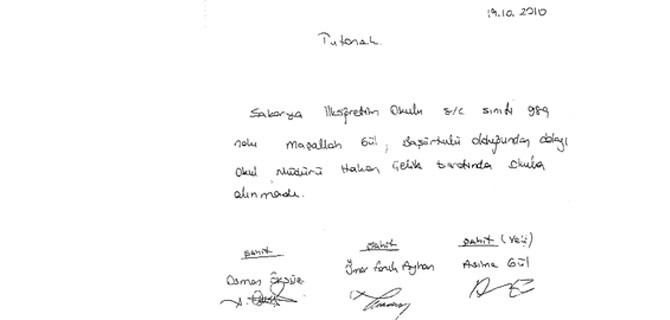 19.10.2010
Tutanak
Sakarya İlköğretim Okulu 8/C sınıfı 989
nolu Maşallah Gül, Başörtülü olduğundan dolayı
Okul Müdürü Hakan Çelik tarafında Okula
alınmadı.
Şahit Şahit Şahit (Veli)
Osman Ömer Faruk Ayhan Asima Gül